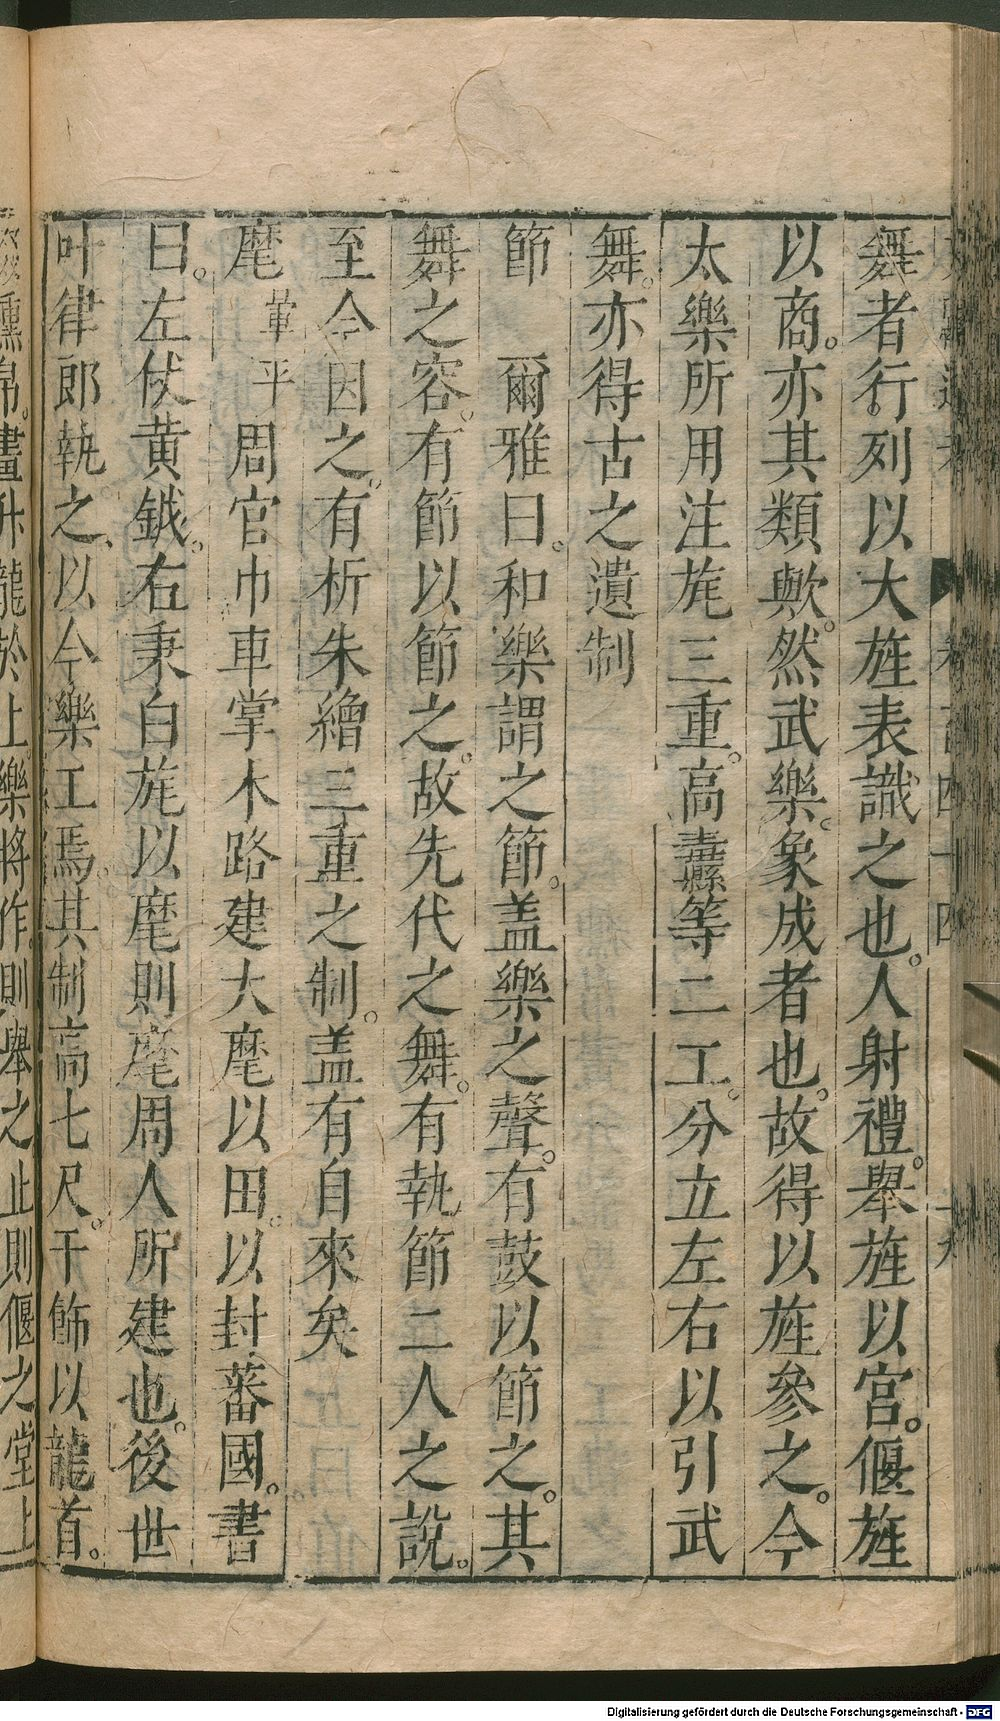 舞者行列以大旌表識之也。人射禮。舉旌以宮。偃旌
以商。亦其類歟。然武樂。象成者也。故得以旌參之。今
太樂所用注旄三重。高纛縣等二工。分立左右以引武
舞。亦得古之遺制
節　爾雅曰。和樂謂之節。盖樂之聲。有鼓以節之。其
舞之容。有節以節之。故先代之舞。有執節二人之說。
至今因之。有析朱繒三重之制。盖有自來矣
麾　葷平　周官巾車掌木路建大麾以田。以封蕃國。書
曰。左伏黄鉞。右秉白旄以麾則麾周人所建也。後世
叶律郎執之、以今樂工焉。其制高七尺。干飾以龍首。
帛。畫升龍於上。樂將作。則舉之止則偃之堂上
Digitalisierung gefördert durch die Deutsche Forschungsgemeinschaft - DFG